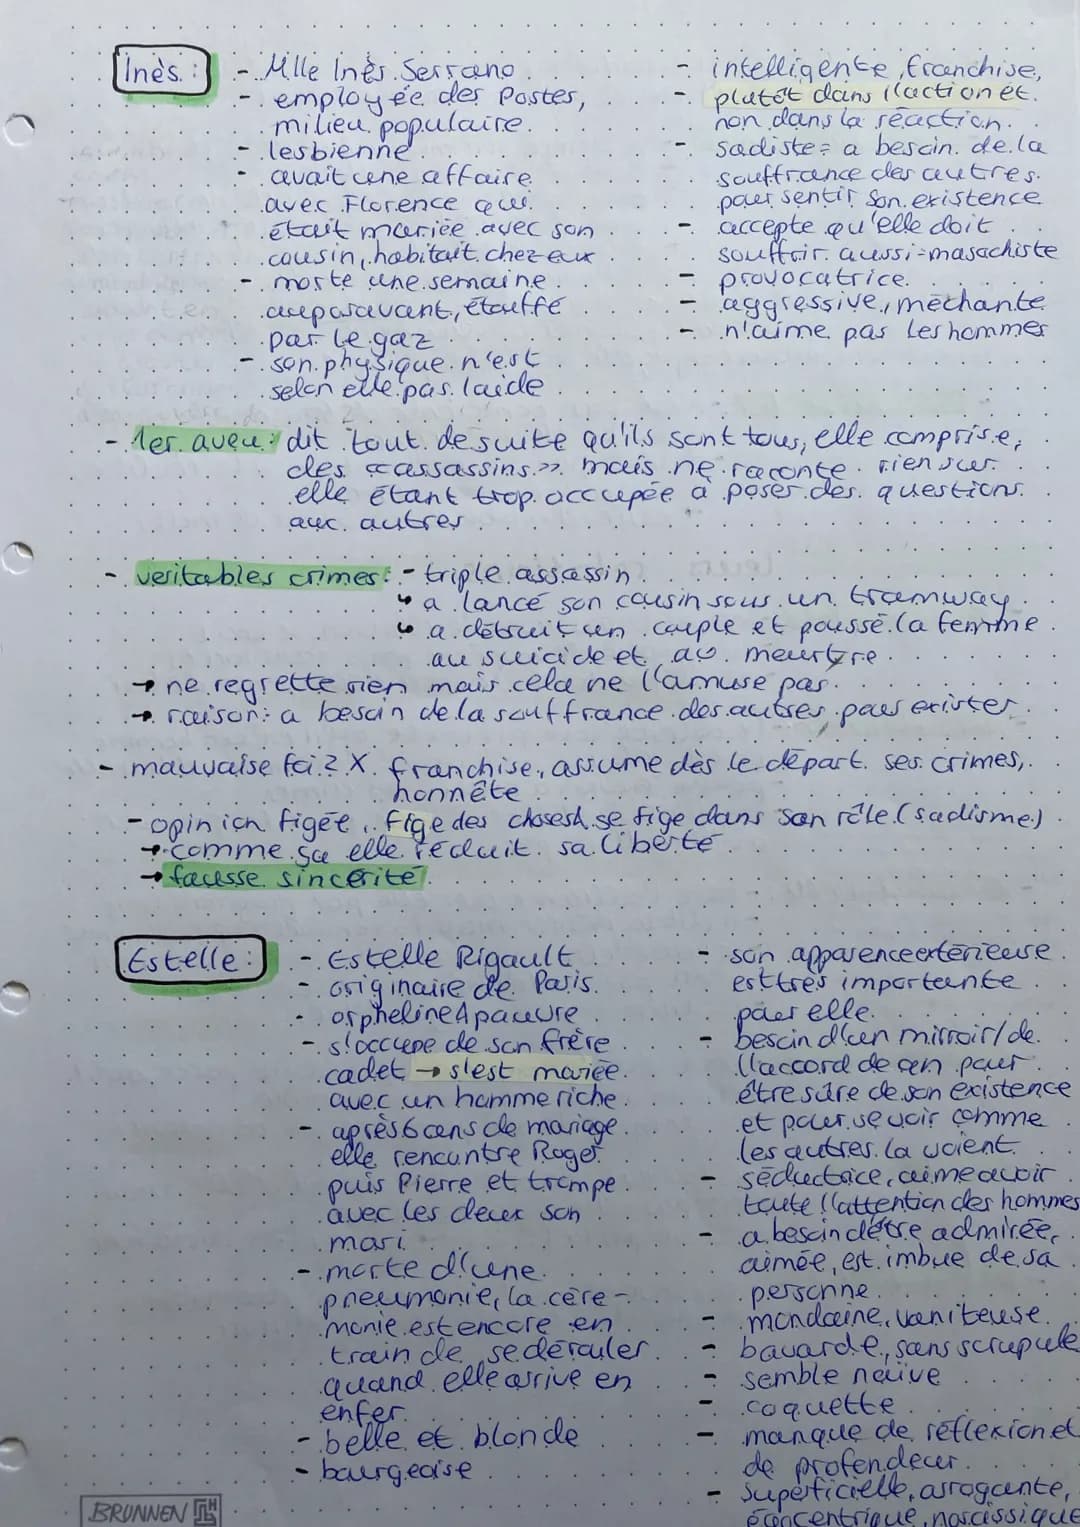 Inès :
- Mlle Inès Serrano
- employée des Postes,
milieu populaire.
- lesbienne
- avait une affaire
avec Florence qui
était mariée avec son
cousin, habitait chez eux
- morte une semaine
auparavant, étouffé
par le gaz
- son physique n'est
selon elle pas laide
- intelligente, franchise,
- plutôt dans l'action et
non dans la réaction.
- sadiste = a besoin de la
souffrance des autres
pour sentir son existence
- accepte qu'elle doit
souffrir aussi = masochiste
- provocatrice
- aggressive, méchante
- n'aime pas les hommes
- 1er aveu : dit tout de suite qu'ils sont tous, elle comprise,
des «assassins» mais ne raconte rien sur
elle étant trop occupée à poser des questions
aux autres
- veritables crimes : - triple assassin
↳ a lancé son cousin sous un tramway
↳ a détruit un couple et poussé la femme
au suicide et au meurtre
→ ne regrette rien mais cela ne l'amuse pas
→ raison : a besoin de la souffrance des autres pour exister
- mauvaise foi ? X franchise, assume dès le départ ses crimes,
honnête
- opinion figée, fige des choses se fige dans son rôle (sadisme)
→ comme ça elle réduit sa liberté
→ fausse sincérité
Estelle :
- Estelle Rigault
- originaire de Paris
- orpheline & pauvre
- s'occupe de son frère
cadet → s'est mariée
avec un homme riche
- après 6 ans de mariage
elle rencontre Roger
puis Pierre et trompe
avec les deux son
mari
- morte d'une
pneumonie, la céré-
monie est encore en
train de se dérouler
quand elle arrive en
enfer
- belle et blonde
- bourgeoise
- son apparence extérieuse
est très importante
pour elle
- besoin d'un mirroir / de
l'accord de qn pour
être sûre de son existence
et pour se voir comme
les autres la voient
- séductrice, aime avoir
toute l'attention des hommes
- a besoin d'être admirée,
aimée, est imbue de sa
personne
- mondaine, vaniteuse
- bavarde, sans scrupule
- semble naïve
- coquette
- manque de réflexion et
de profondeur
- superficielle, arrogante,
égocentrique, narcissique
BRUNNEN